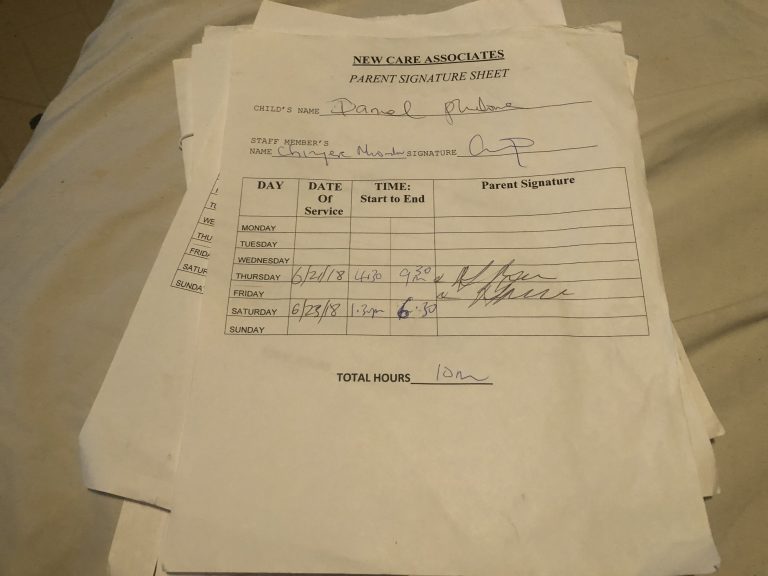 NEW CARE ASSOCIATES
PARENT SIGNATURE SHEET
CHILD'S NAME Daniel
STAFF MEMBER'S
NAME SIGNATURE
DAY DATE Of Service TIME: Start to End Parent Signature
MONDAY
TUESDAY
WEDNESDAY
THURSDAY 6/21/18 4:30 9:30
FRIDAY
SATURDAY 6/23/18 1:30pm 6:30
SUNDAY
TOTAL HOURS
WE
THU
FRIDA
SATUR
SUNDA